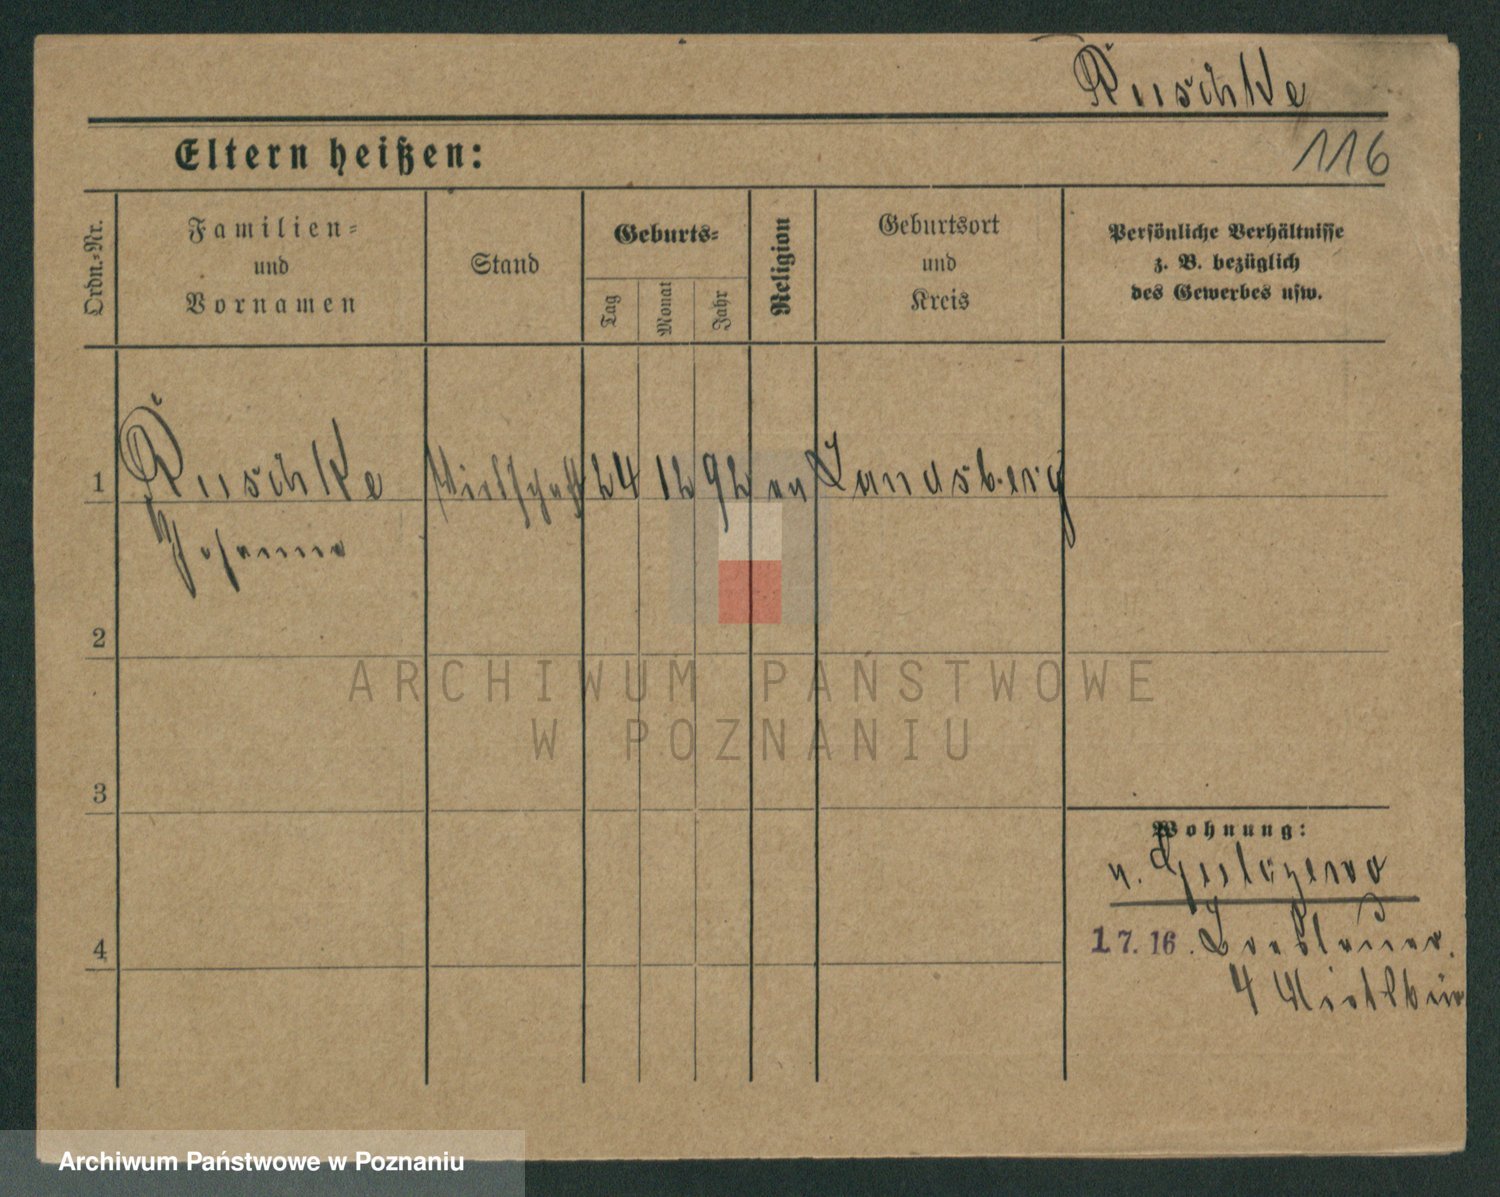 Ruschke
116
Eltern heißen:
Ordn.-Nr.
Familien-
und
Vornamen
Stand
Geburts-
Tag
Monat
Jahr
Religion
Geburtsort
und
Kreis
Persönliche Verhältnisse
z. B. bezüglich
des Gewerbes usw.
1 Ruschke 24 12 92 Landsberg
2
ARCHIWUM PAŃSTWOWE
W POZNANIU
3
Wohnung:
4
17.16.
4
Archiwum Państwowe w Poznaniu